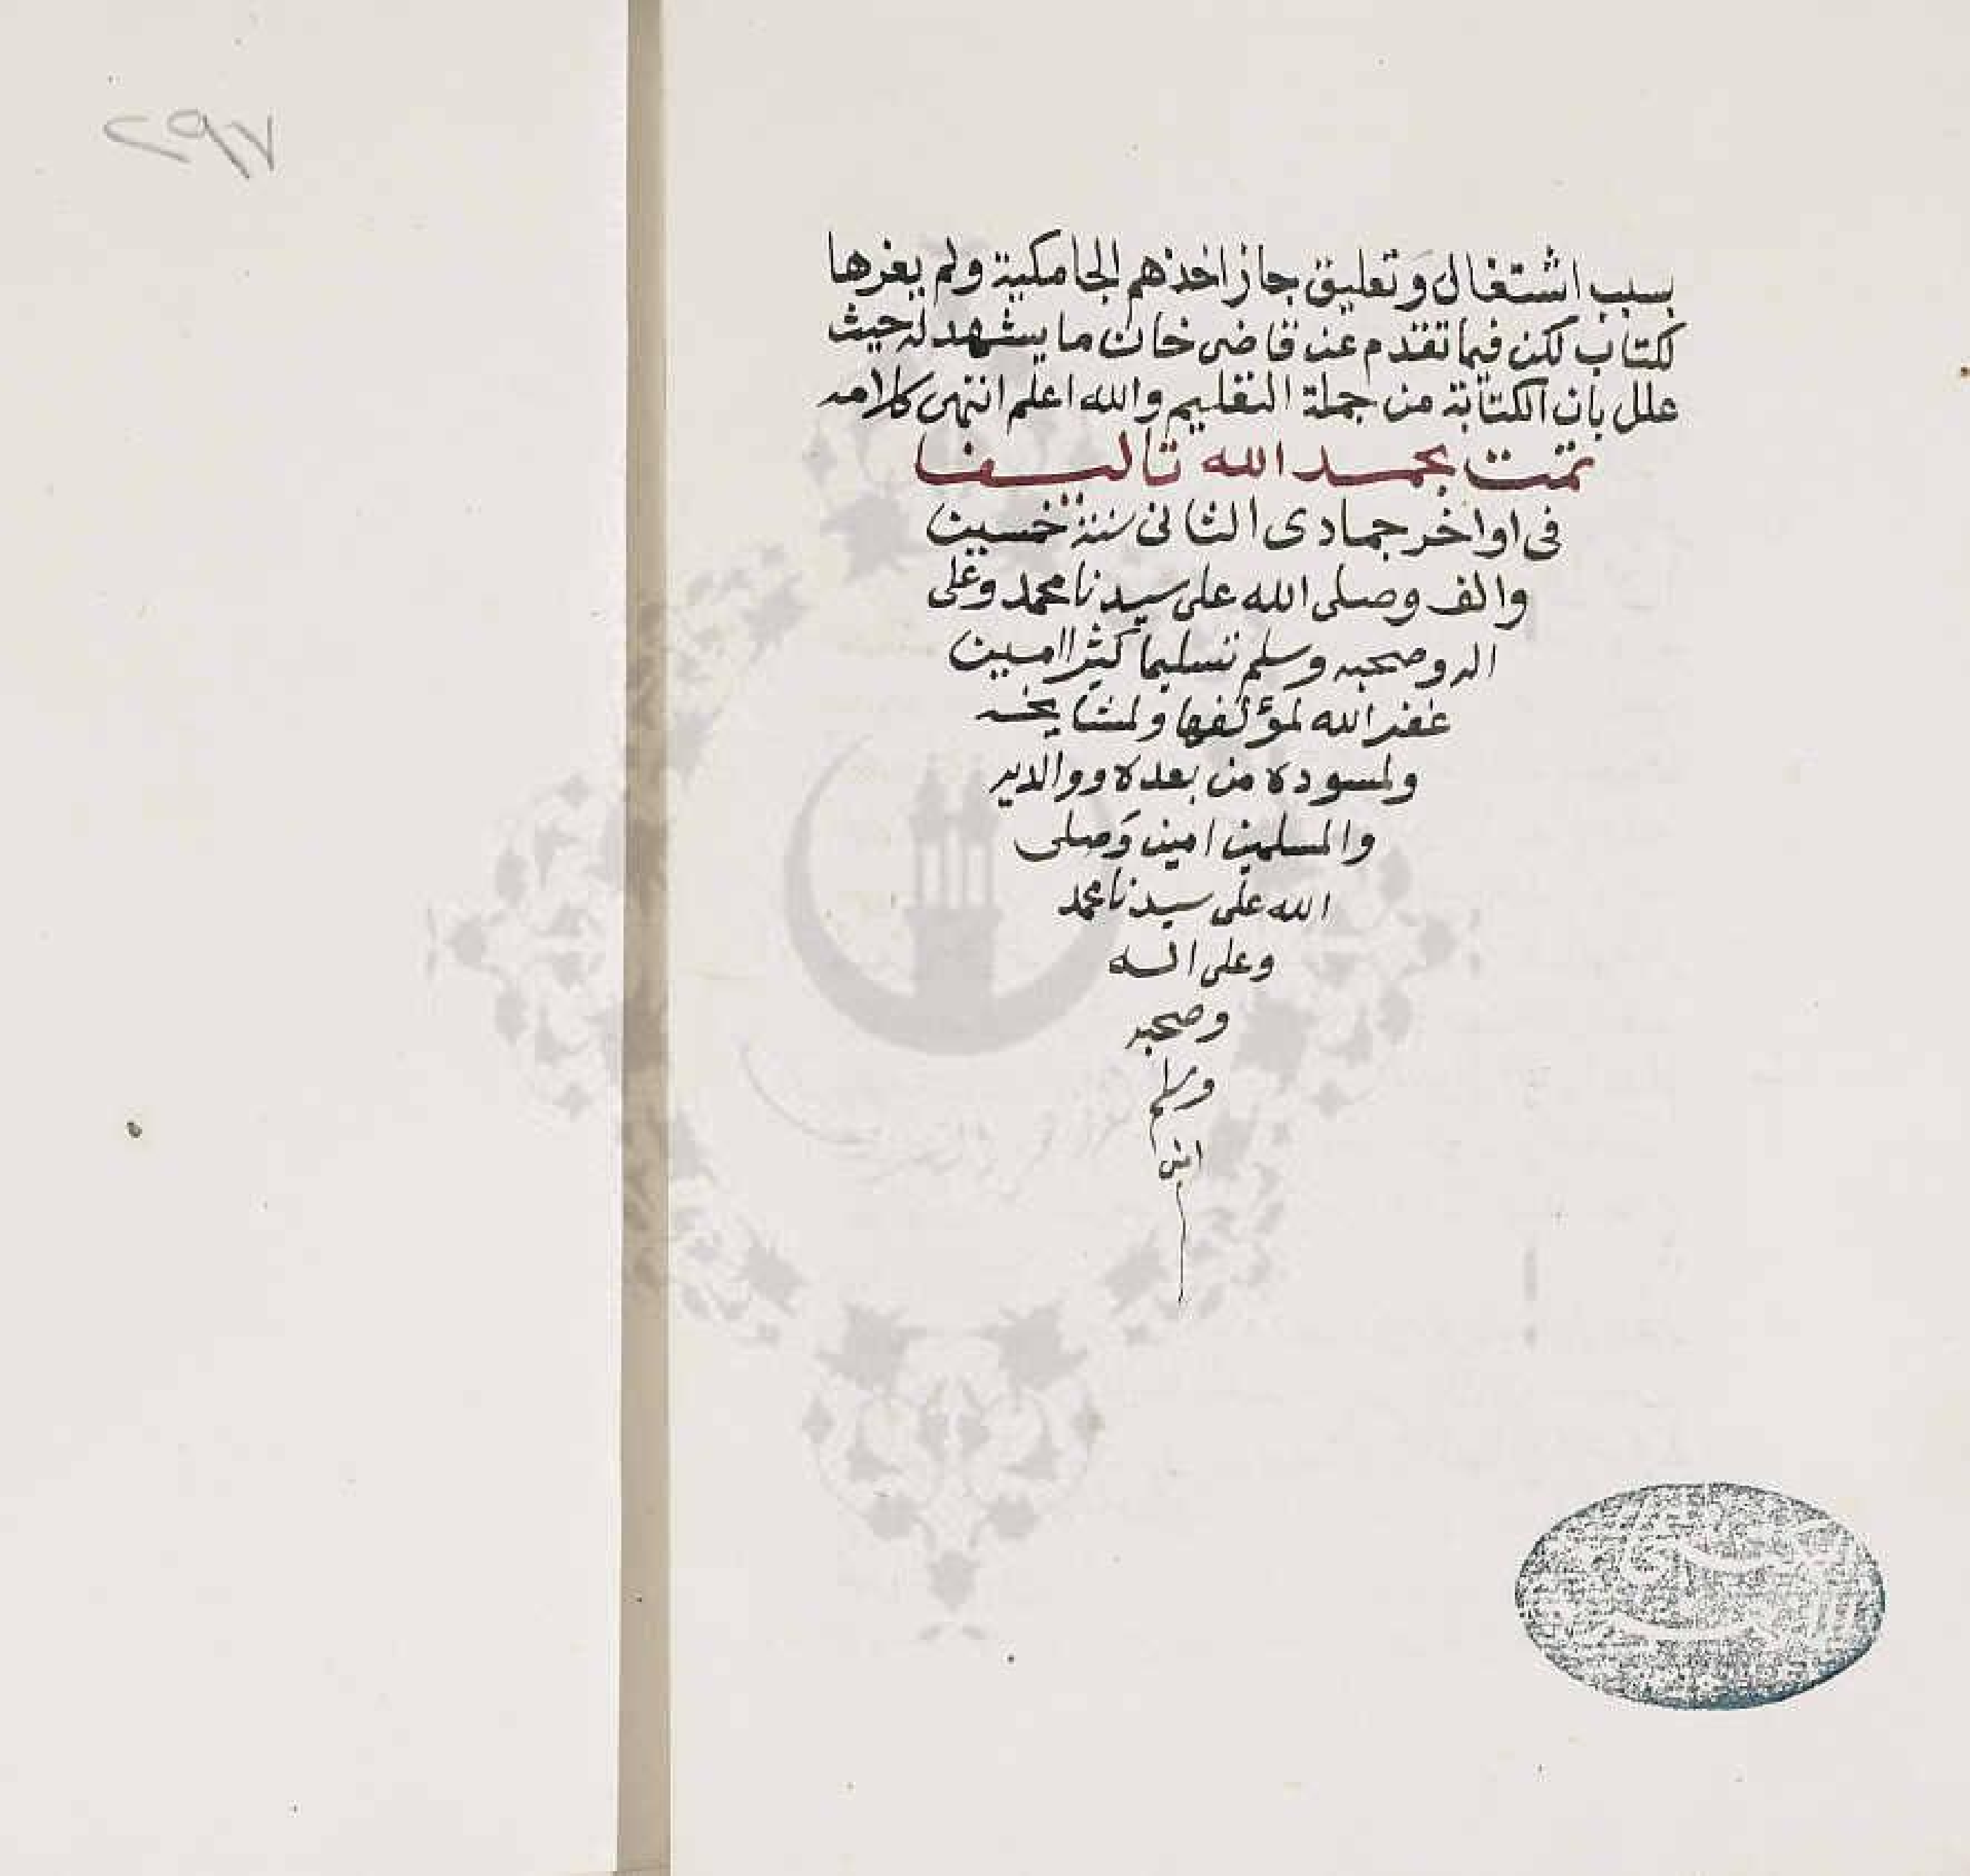 بسبب اشتغال وتعليق جاز اخذهم الجامكية ولم يعزها
لكتاب لكن فيما تقدم عن قاضى خان ما يشهد له حيث
علل بان الكتابة من جملة التعليم والله اعلم انتهى كلامه
تمت بحمد الله تاليفا
فى اواخر جمادى الثانى سنة خمسين
والف وصلى الله على سيدنا محمد وعلى
اله وصحبه وسلم تسليما كثيرا امين
غفر الله لمؤلفها ولمشايخه
ولمسوده من بعده ووالديه
والمسلمين امين وصلى
الله على سيدنا محمد
وعلى اله
وصحبه
وسلم
امين
٢٩٧